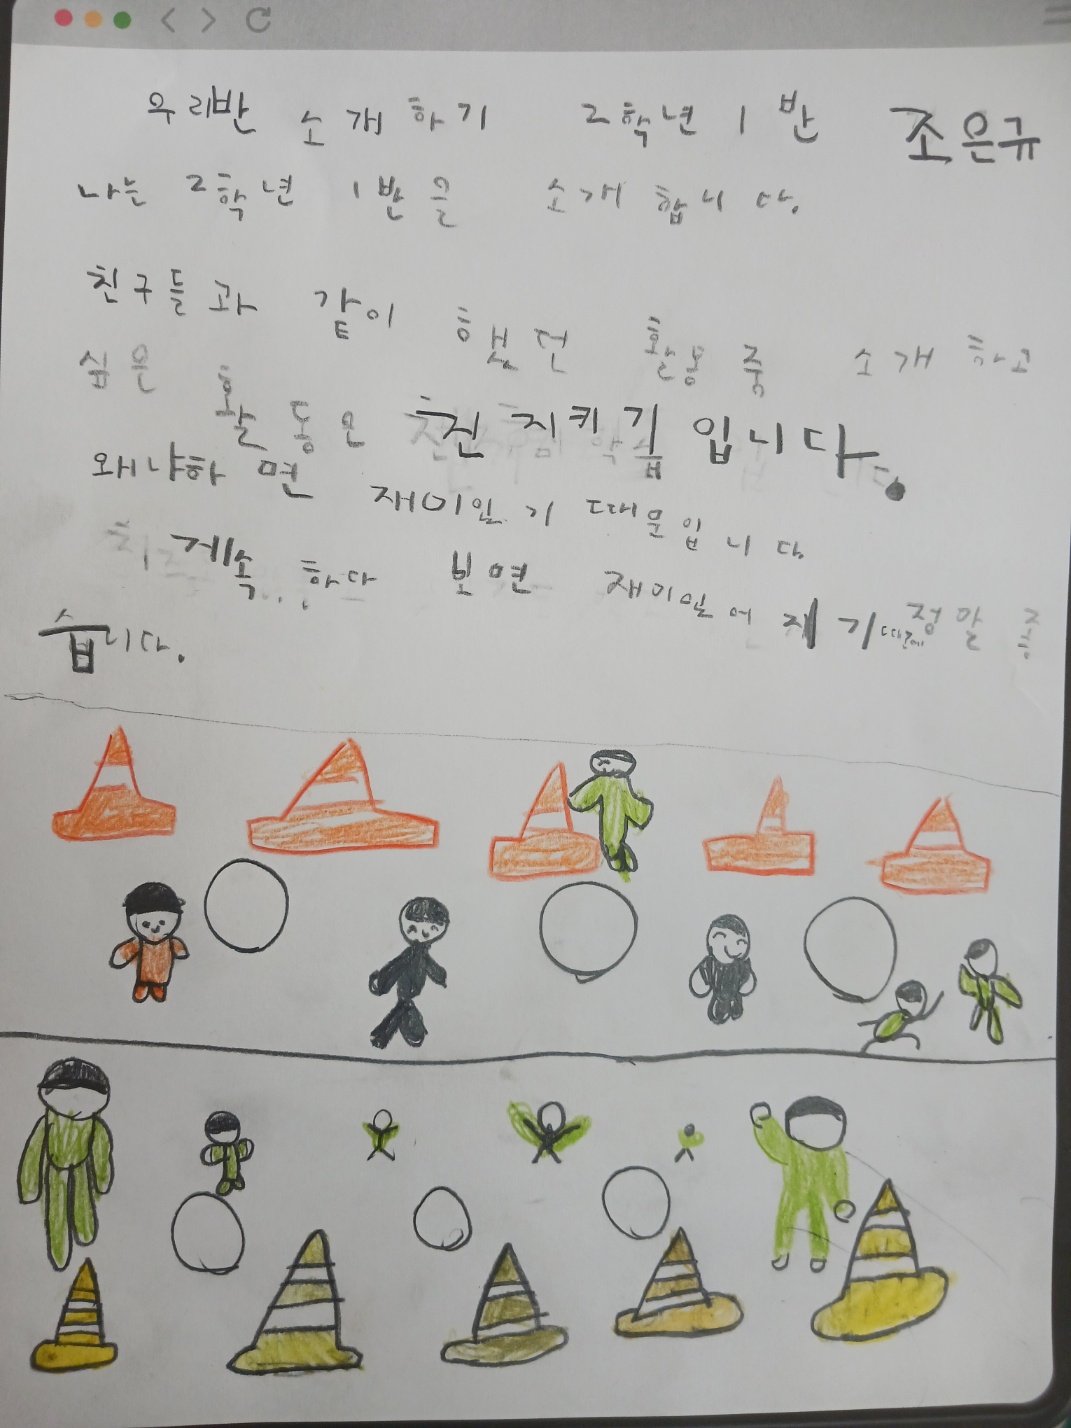 우리반 소개하기 2학년 1반 조은규
나는 2학년 1반을 소개합니다.
친구들과 같이 했던 활동중 소개하고
싶은 활동은 진지키기입니다.
왜냐하면 재미있기 때문입니다
계속 하다 보면 재미있어지기 때문에 정말 좋
습니다.